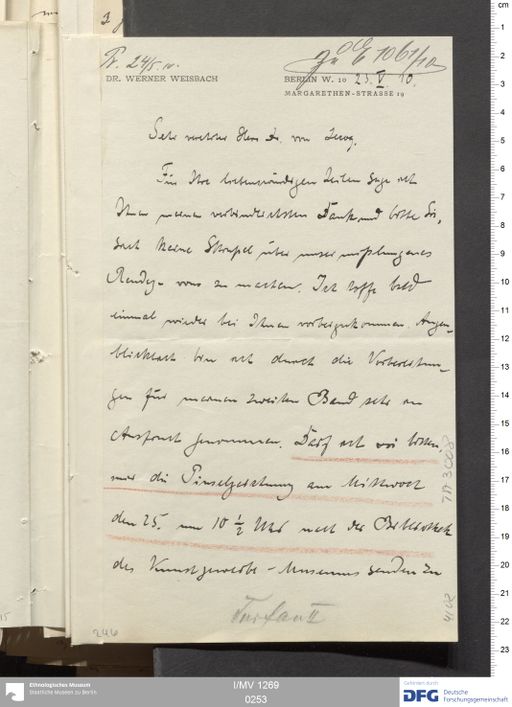 Pr. 24/5. 10.
Zu E 1061/10
DR. WERNER WEISBACH
BERLIN W. 10 23. V. 10.
MARGARETHEN-STRASSE 19
Sehr verehrter Herr Dr. von Lecoq.
Für Ihre liebenswürdigen Zeilen sage ich
Ihnen meinen verbindlichsten Dank und bitte Sie,
sich keine Skrupel über unser misslungenes
Rendez-vous zu machen. Ich hoffe bald
einmal wieder bei Ihnen vorbeizukommen. Augen-
blicklich bin ich durch die Vorbereitun-
gen für meinen zweiten Band sehr in
Anspruch genommen. Darf ich Sie bitten,
mir die Pinselzeichnung am Mittwoch
den 25. um 10 1/2 Uhr nach der Bibliothek
des Kunstgewerbe-Museums senden zu
Turfan II
246
TA 3008
15
I/MV 1269
0253
Ethnologisches Museum
Staatliche Museen zu Berlin
Gefördert durch
DFG Deutsche
Forschungsgemeinschaft
cm
1
2
3
4
5
6
7
8
9
10
11
12
13
14
15
16
17
18
19
20
21
22
23